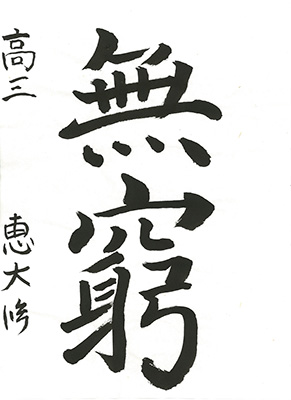 無窮
高三 恵大修